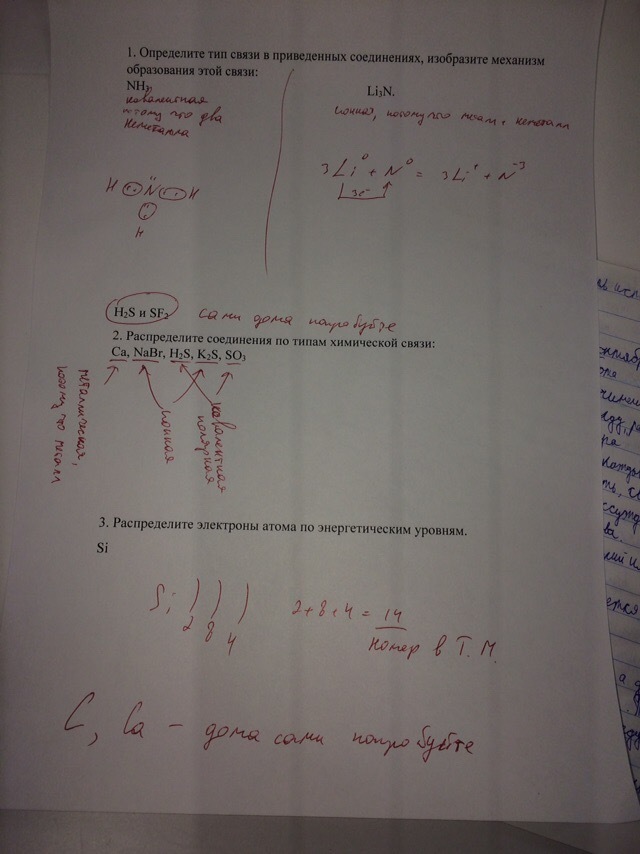 1. Определите тип связи в приведенных соединениях, изобразите механизм
образования этой связи:
NH3,
ковалентная
потому что два
неметалла
Li3N.
ионная, потому что метал + неметалл
3Li⁰ + N⁰ = 3Li⁺ + N⁻³
3e⁻
H N H
H
H2S и SF2
сами дома попробуйте
2. Распределите соединения по типам химической связи:
Ca, NaBr, H2S, K2S, SO3
металлическая,
потому что металл
ионная
ковалентная
полярная
3. Распределите электроны атома по энергетическим уровням.
Si
Si ) ) )
2 8 4
2+8+4 = 14
номер в Т. М.
C, Ca – дома сами попробуйте